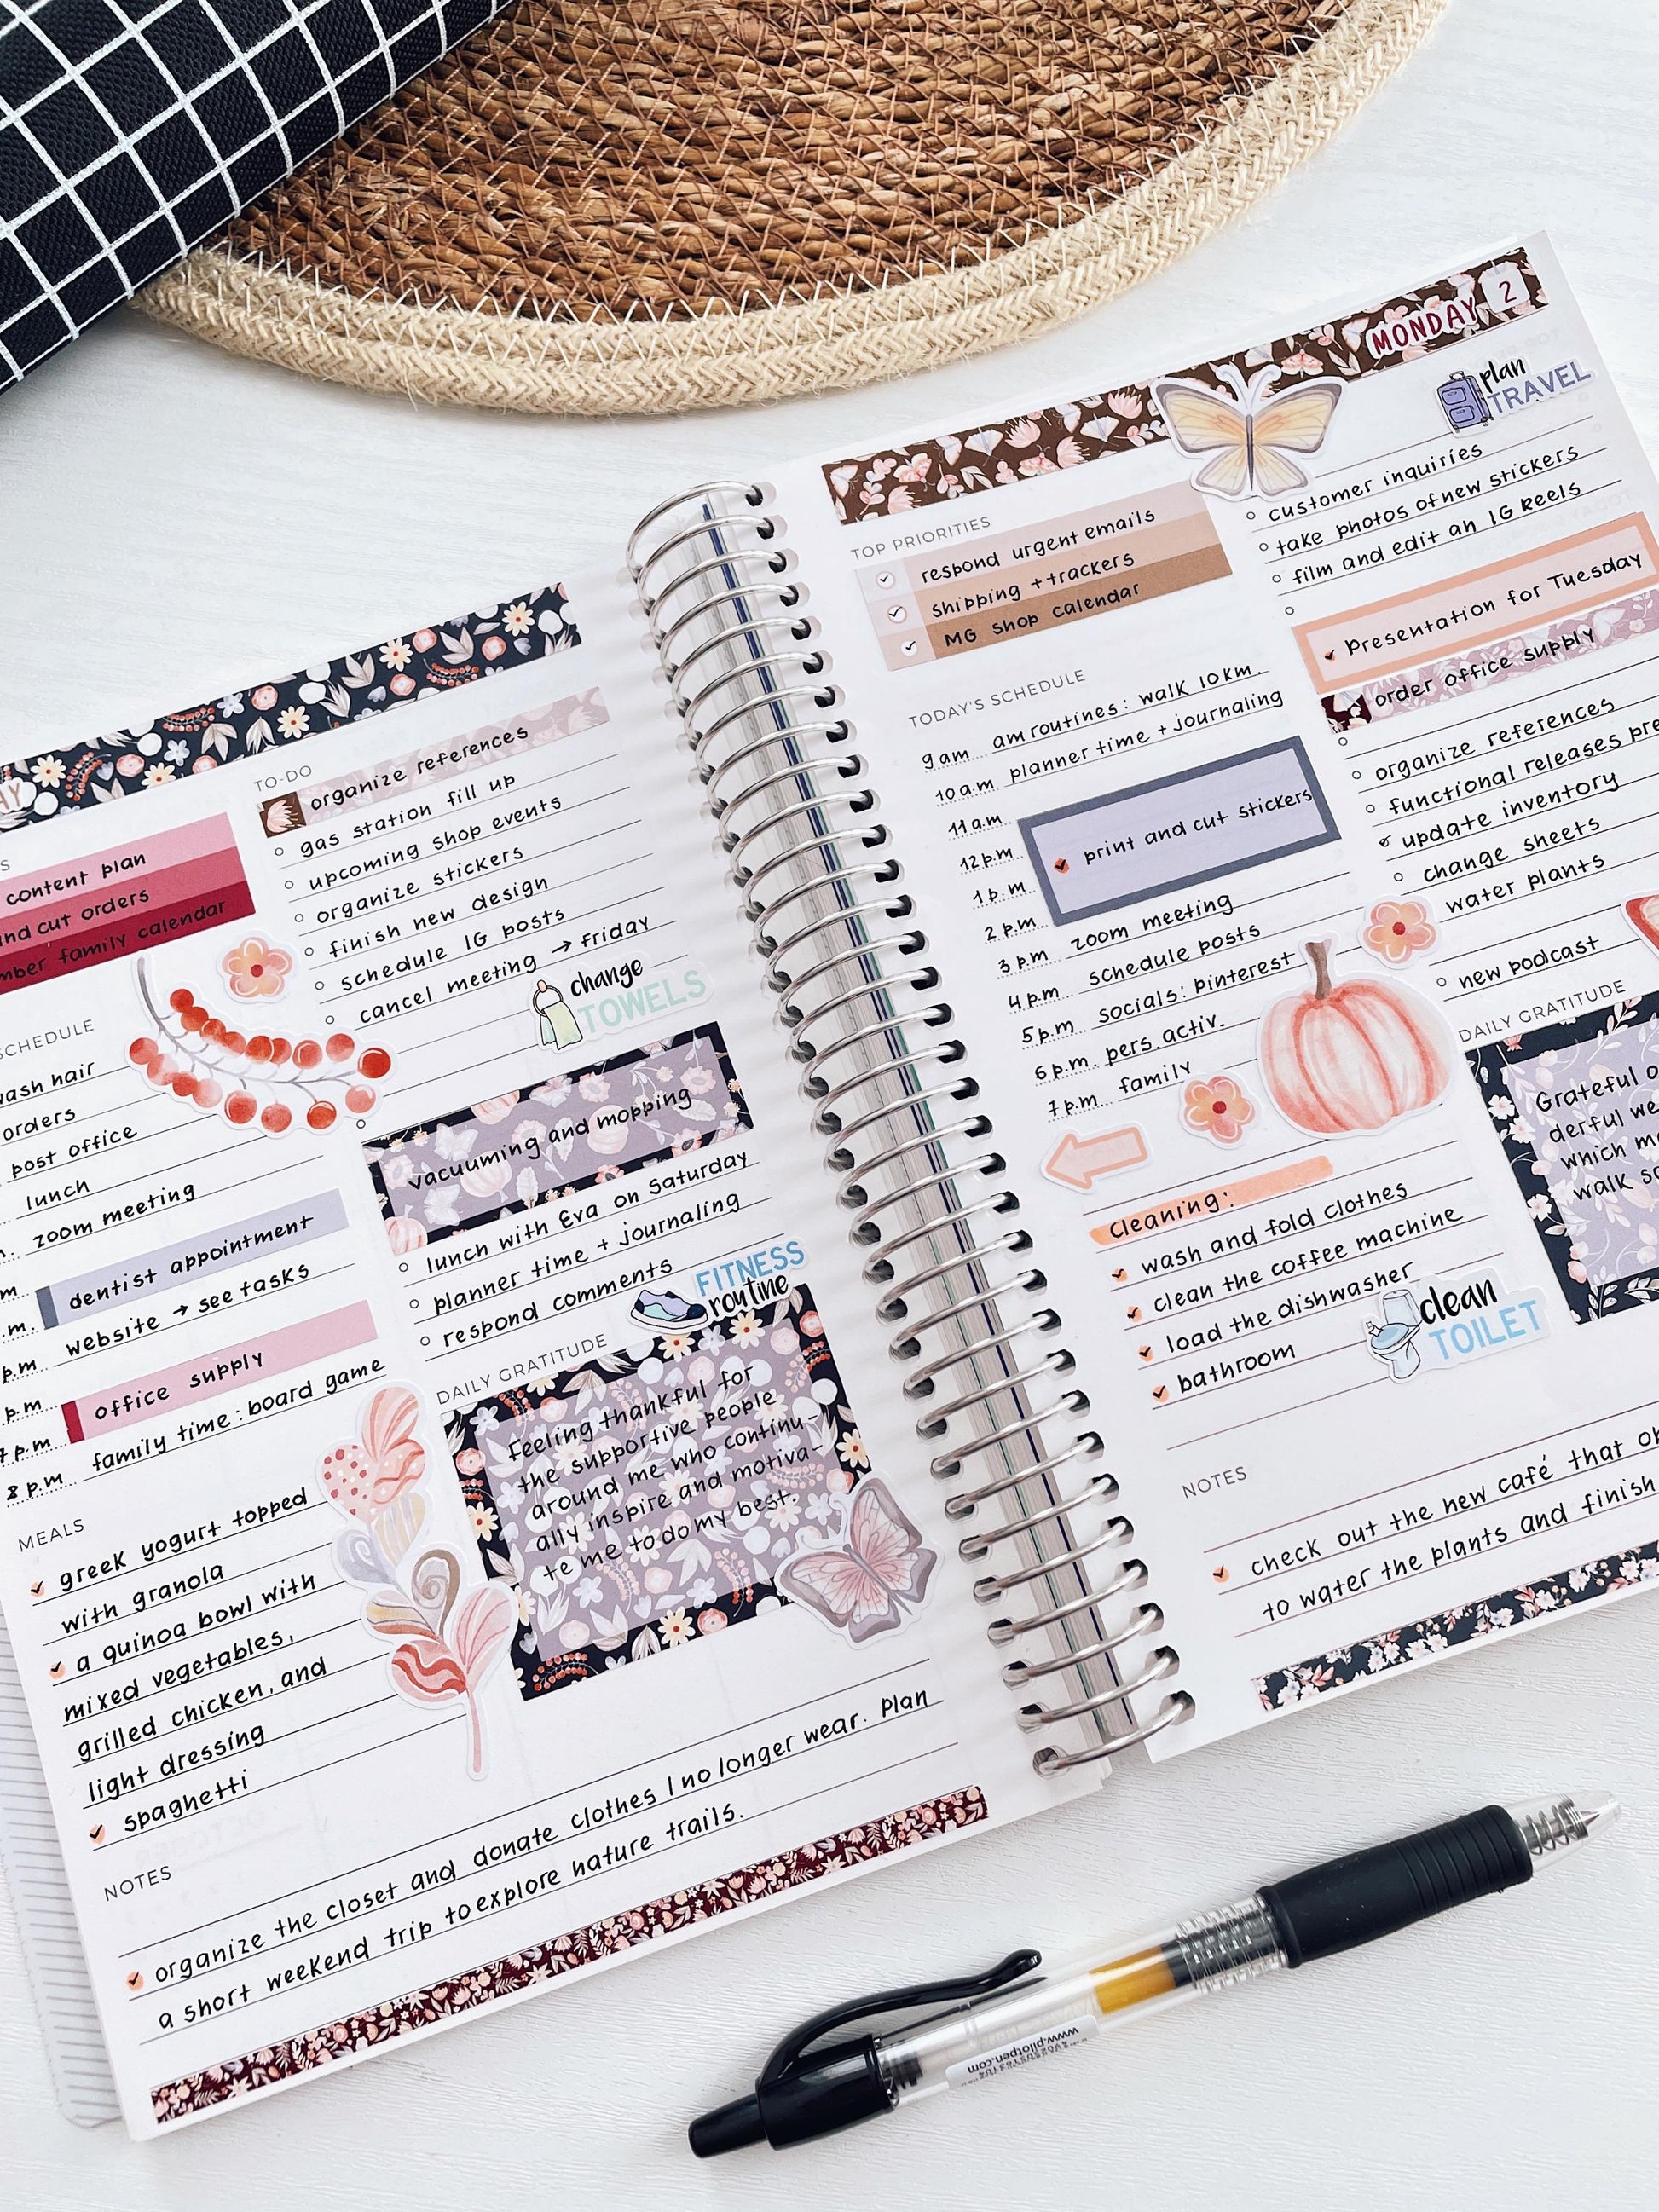 content plan
cut orders
family calendar
SCHEDULE
wash hair
orders
post office
lunch
zoom meeting
dentist appointment
website → see tasks
p.m
office supply
p.m
family time: board game
8 p.m.
MEALS
greek yogurt topped
with granola
a quinoa bowl with
mixed vegetables,
grilled chicken, and
light dressing
spaghetti
TO-DO
organize references
gas station fill up
upcoming shop events
organize stickers
finish new design
schedule IG posts
cancel meeting → Friday
change
TOWELS
vacuuming and mopping
lunch with Eva on Saturday
planner time + journaling
respond comments
FITNESS
routine
DAILY GRATITUDE
Feeling thankful for
the supportive people
around me who continu-
ally inspire and motiva-
te me to do my best.
NOTES
organize the closet and donate clothes I no longer wear. Plan
a short weekend trip to explore nature trails.
MONDAY 2
TOP PRIORITIES
respond urgent emails
shipping + trackers
MG shop calendar
TODAY'S SCHEDULE
9 am am routines: walk 10 km.
10 a.m planner time + journaling
11 a.m.
12 p.m print and cut stickers
1 p.m
2 p.m. zoom meeting
3 p.m. schedule posts
4 p.m socials: pinterest
5 p.m pers. activ.
6 p.m. family
7 p.m.
Cleaning:
wash and fold clothes
clean the coffee machine
load the dishwasher
bathroom
clean
TOILET
plan
TRAVEL
customer inquiries
take photos of new stickers
film and edit an IG Reels
Presentation for Tuesday
order office supply
organize references
functional releases pre
update inventory
change sheets
water plants
new podcast
DAILY GRATITUDE
Grateful
derful we
which
walk
NOTES
check out the new café that
to water the plants and finish
www.pilotpen.com